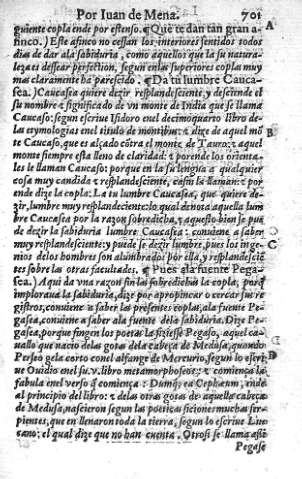 Por Iuan de Mena. 701
guiente copla ende por estenso. ¶ Que te dan tan gran a-
finco.) Este afinco no cessan los interiores sentidos todos
dias de dar ala sabiduria, como aquellos que la su natura-
leza es dessear perfection, segun enla superiores copla muy
mas claramente ha parescido. ¶ Da tu lumbre Cauca-
sea.) Caucasea quiere dezir resplandesciente, y desciende el
su nombre & significado de vn monte de India que se llama
Caucaso: segun escriue Isidoro enel decimoquarto libro de-
las etymologias enel titulo de montibus: & dize de aquel mõ
te Caucaso, que es alçado cõtra el monte de Tauro: & aquel
monte siempre esta lleno de claridad: & porende los orienta-
les le llaman Caucaso: porque en la su lengua a qualquier
cosa muy candida & resplandesciente, casin la llaman: & por
ende dize la copla: La tu lumbre Caucasea, que quiere de-
zir, lumbre muy resplandeciente: lo qual denota aquella lum
bre Caucasea por la razon sobredicha, & aquesto bien se pue
de dezir la sabiduria lumbre Caucasea: conuiene a saber
muy resplandesciente: y puede se dezir lumbre, pues los inge-
nios delos hombres son alumbrados por ella, y resplandesciẽ
tes sobre las otras faculiades. ¶ Pues ala fuente Pega-
sea.) Aqui da vna razon sin las sobredichas la copla, porq̃
imploraua la sabiduria, dize por apropincar o cercar sus re
gistros, conuiene a saber las presentes coplas, ala fuente Pe-
gasea, conuiene a saber ala fuente dela sabiduria. Dize Pe-
gasea, porque fingen los poetas la fiziesse Pegaso, aquel ca-
uallo que nacio delas gotas dela cabeça de Medusa, quando
Perseo gela corto conel alfange de Mercurio, segun lo escri-
ue Ouidio enel su .v. libro metamorphoseos: & comiença la
fabula enel verso q̃ comiença: Dumq; ea Cephæum, ende
al principio del libro: & delas otras gotas de aquella cabeça
de Medusa, nascieron segun las poeticas ficiones muchas ser-
pientes, que en llenaron toda la tierra, segun lo escriue Lu-
cano: el qual dize que no han cuenta. Otrosi se llama assi
Pegase
A
B
C